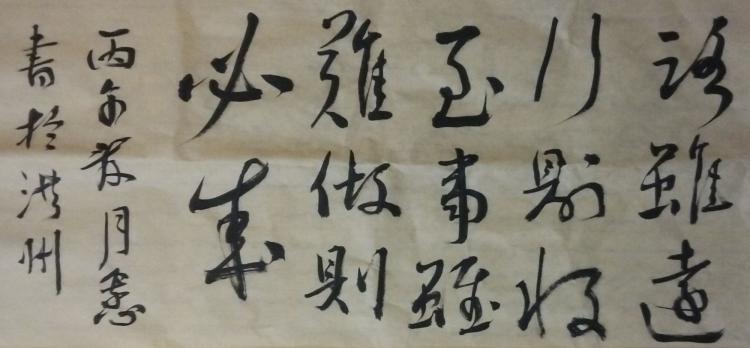 路雖遠
行則将
至事雖
難做則
必成
丙午月
書於洪州